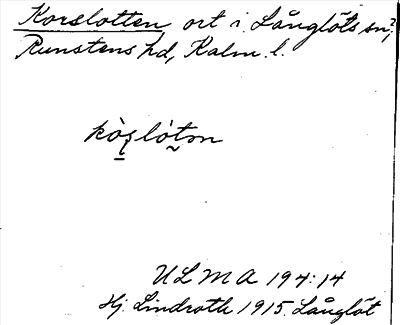 Korslotten ort i Långlöts sn?,
Runstens hd, Kalm. l.
kòṣlótən
ULMA 194:14
Hj. Lindroth 1915. Långlöt